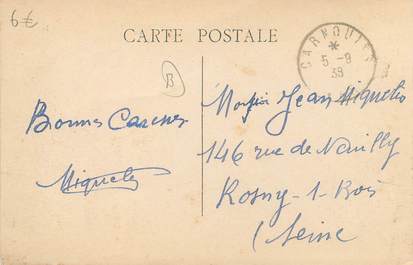 6€
CARTE POSTALE
CARNOULES
5-9
39
B
Bonnes Caresses
Miquelis
Monsieur Jean Miquelis
146 rue de Neuilly
Rosny-s-Bois
(Seine